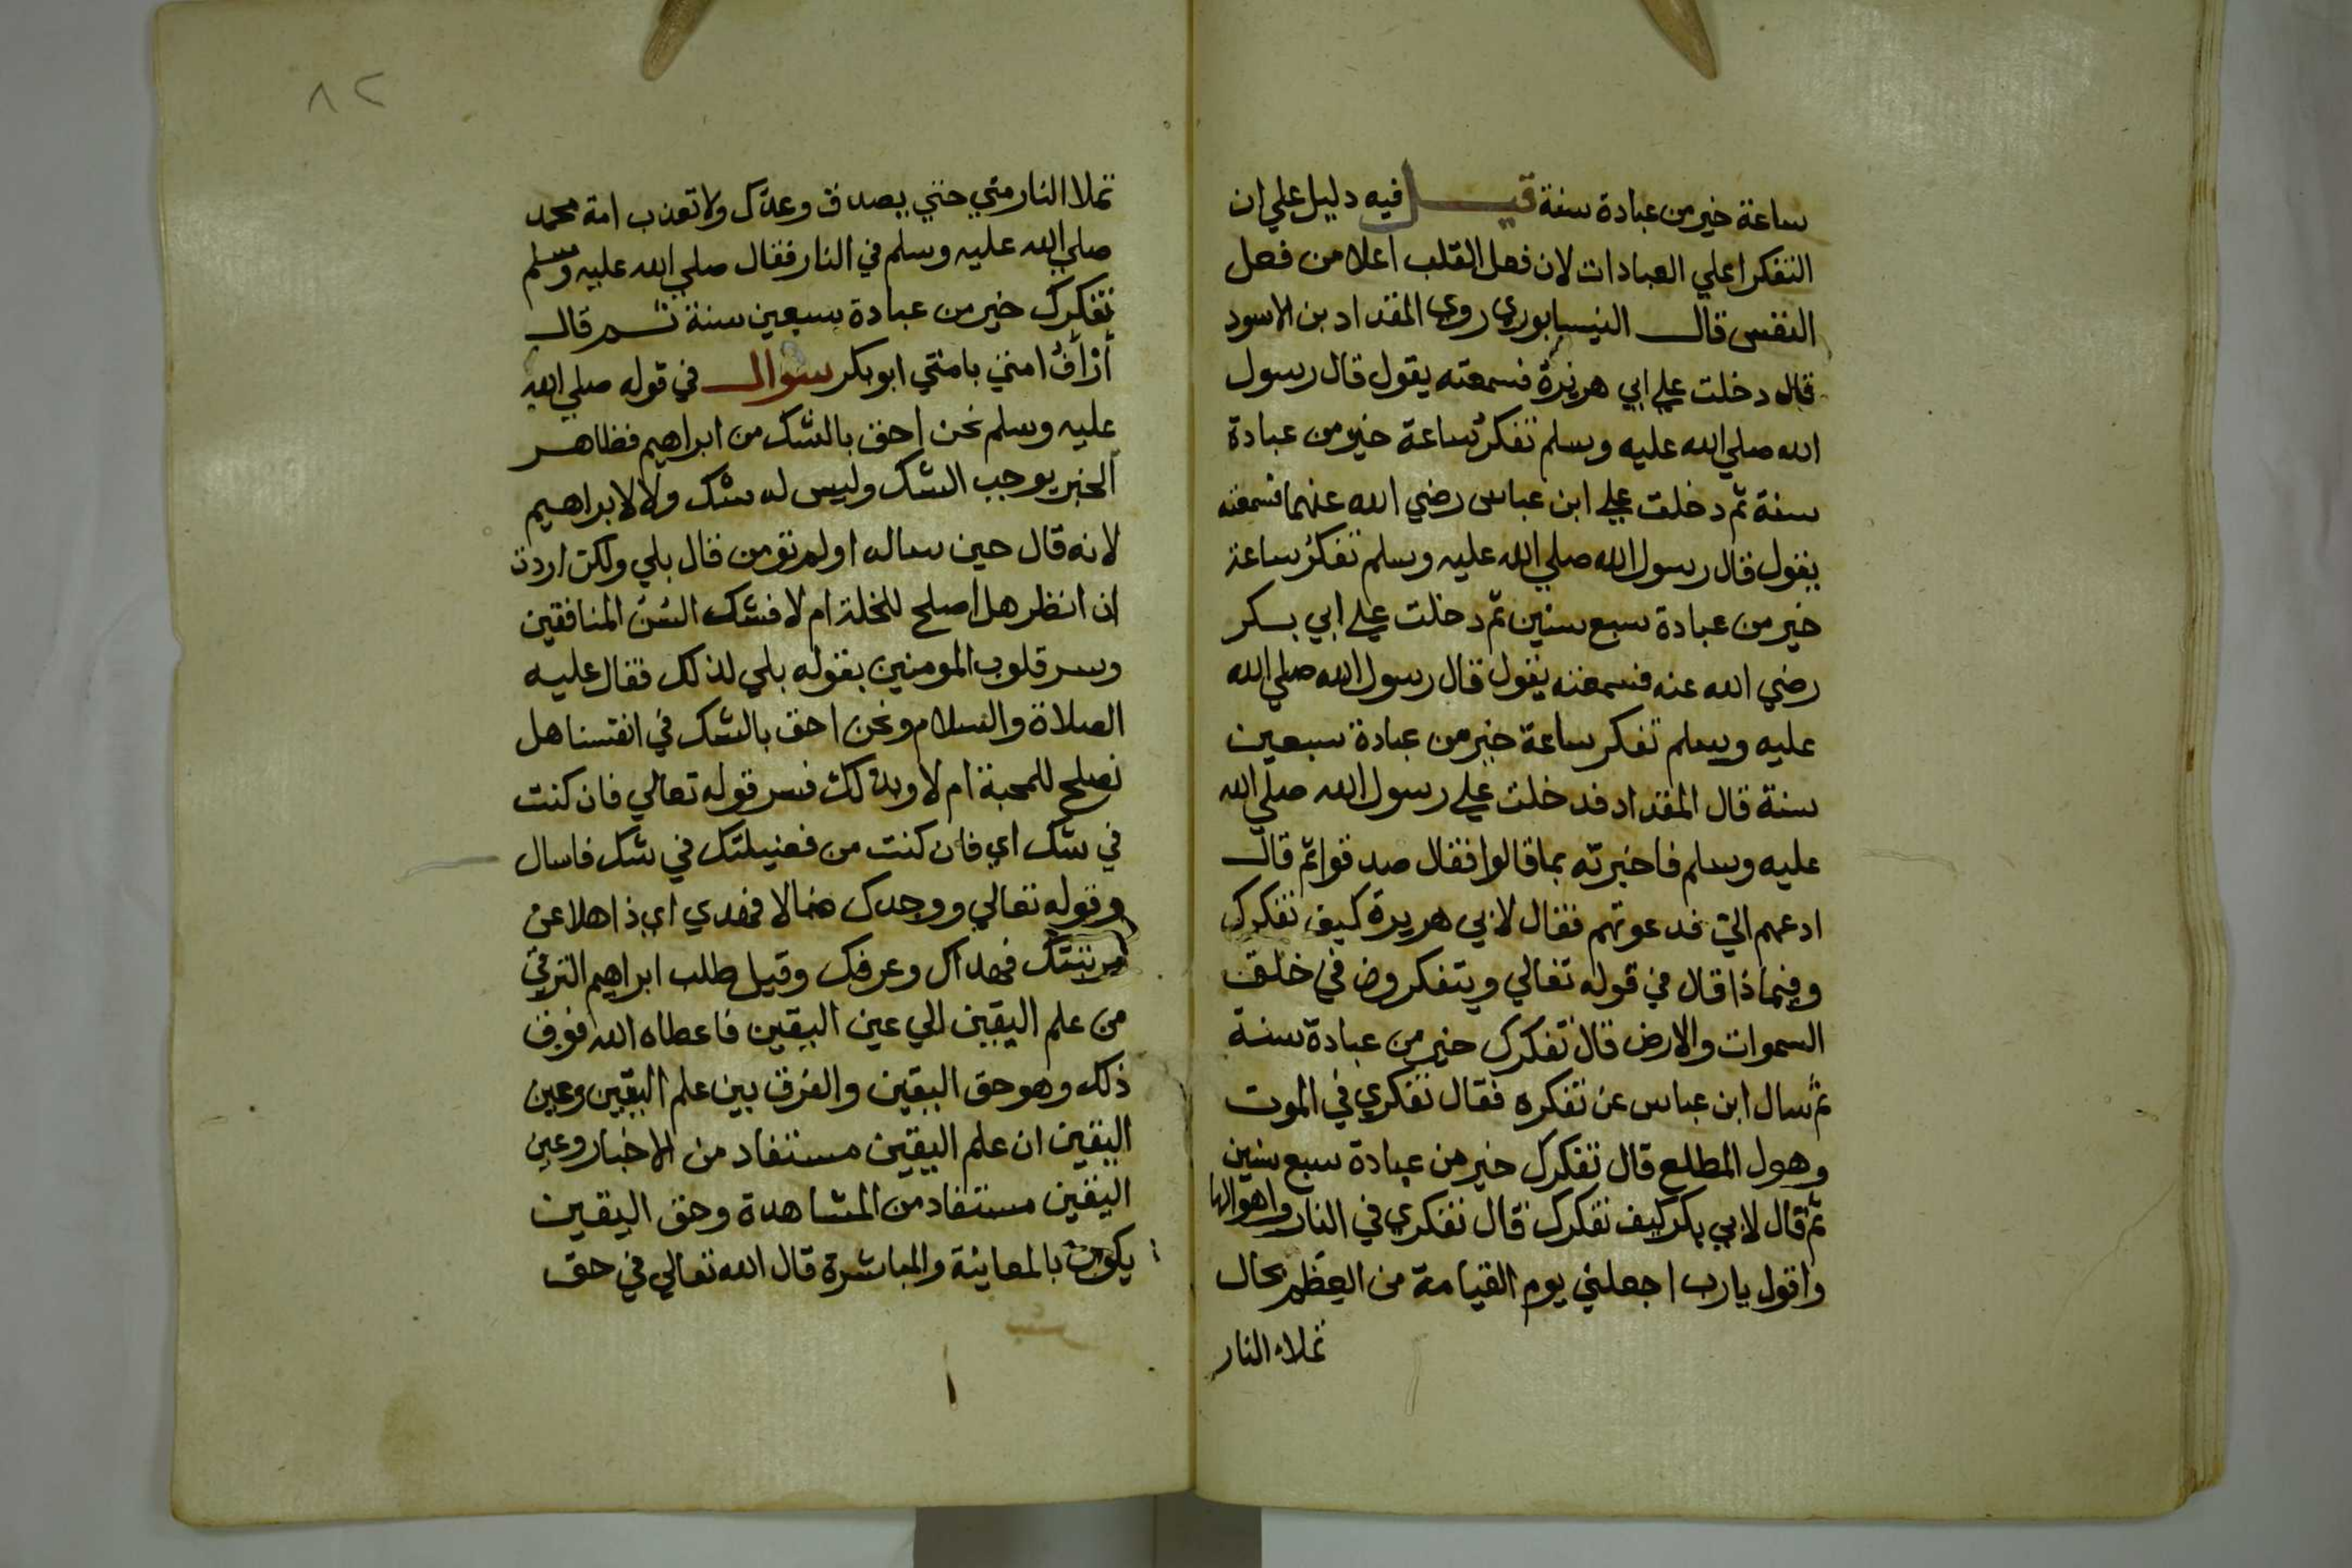 ساعة خير من عبادة سنة قيل فيه دليل علي ان
التفكر اعلي العبادات لان فعل القلب اعلا من فعل
النفس قال النيسابوري روي المقداد بن الاسود
قال دخلت علي ابي هريرة فسمعته يقول قال رسول
الله صلي الله عليه وسلم تفكر ساعة خير من عبادة
سنة ثم دخلت علي ابن عباس رضي الله عنهما فسمعته
يقول قال رسول الله صلي الله عليه وسلم تفكر ساعة
خير من عبادة سبع سنين ثم دخلت علي ابي بكر
رضي الله عنه فسمعته يقول قال رسول الله صلي الله
عليه وسلم تفكر ساعة خير من عبادة سبعين
سنة قال المقداد فدخلت علي رسول الله صلي الله
عليه وسلم فاخبرته بما قالوا فقال صدقوا ثم قال
ادعهم الي فدعوتهم فقال لابي هريرة كيف تفكرك
وفيماذا قال في قوله تعالي ويتفكرون في خلق
السموات والارض قال تفكرك خير من عبادة سنة
ثم سال ابن عباس عن تفكره فقال تفكري في الموت
وهول المطلع قال تفكرك خير من عبادة سبع سنين
ثم قال لابي بكر كيف تفكرك قال تفكري في النار واهوالها
واقول يارب اجعلني يوم القيامة من العظم بحال
تملاء النار
٨٢
تملا النار مني حتي يصدق وعدك ولا تعذب امة محمد
صلي الله عليه وسلم في النار فقال صلي الله عليه وسلم
تفكرك خير من عبادة سبعين سنة ثم قال
أرأف امتي بامتي ابو بكر سوال في قوله صلي الله
عليه وسلم نحن احق بالشك من ابراهيم فظاهر
الخبر يوجب الشك وليس له شك ولا لابراهيم
لانه قال حين ساله اولم تومن قال بلي ولكن اردت
ان انظر هل اصلح للخلة ام لا فشك السن المنافقين
وسر قلوب المومنين بقوله بلي لذلك فقال عليه
الصلاة والسلام ونحن احق بالشك في انفسنا هل
نصلح للمحبة ام لا وبذلك فسر قوله تعالي فان كنت
في شك اي فان كنت من فضيلتك في شك فاسال
وقوله تعالي ووجدك ضالا فهدي اي ذاهلا عن
مرتبتك فهداك وعرفك وقيل طلب ابراهيم الترقي
من علم اليقين الي عين اليقين فاعطاه الله فوق
ذلك وهو حق اليقين والفرق بين علم اليقين وعين
اليقين ان علم اليقين مستفاد من الاخبار وعين
اليقين مستفاد من المشاهدة وحق اليقين
يكون بالمعاينة والمباشرة قال الله تعالي في حق